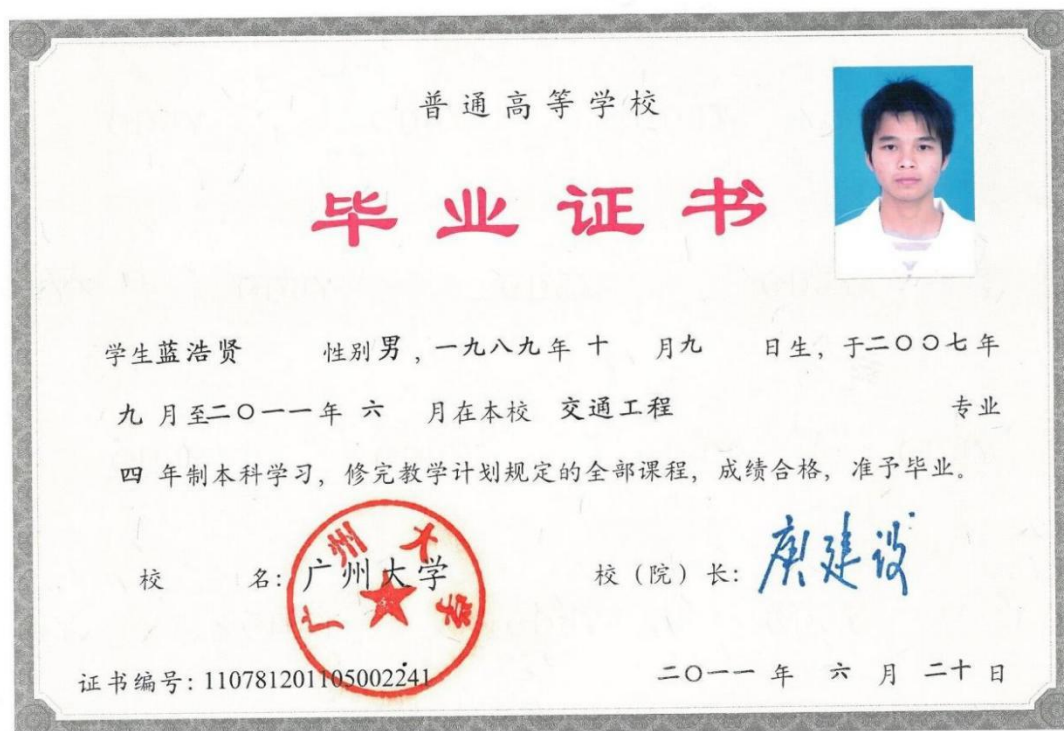 普通高等学校
毕业证书
学生蓝浩贤 性别男，一九八九年十 月九 日生，于二〇〇七年
九月至二〇一一年 六 月在本校 交通工程 专业
四 年制本科学习，修完教学计划规定的全部课程，成绩合格，准予毕业。
校 名：广州大学 校（院）长：庾建设
广州大学
证书编号：110781201105002241 二〇一一年 六 月 二十 日